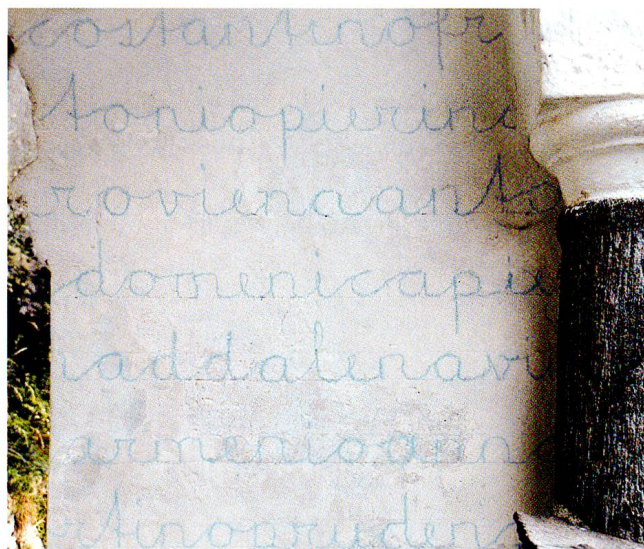 costantinofr
toniopierina
rovienaanto
domenicapie
addalenavi
armenioanna
rtinoprudenz